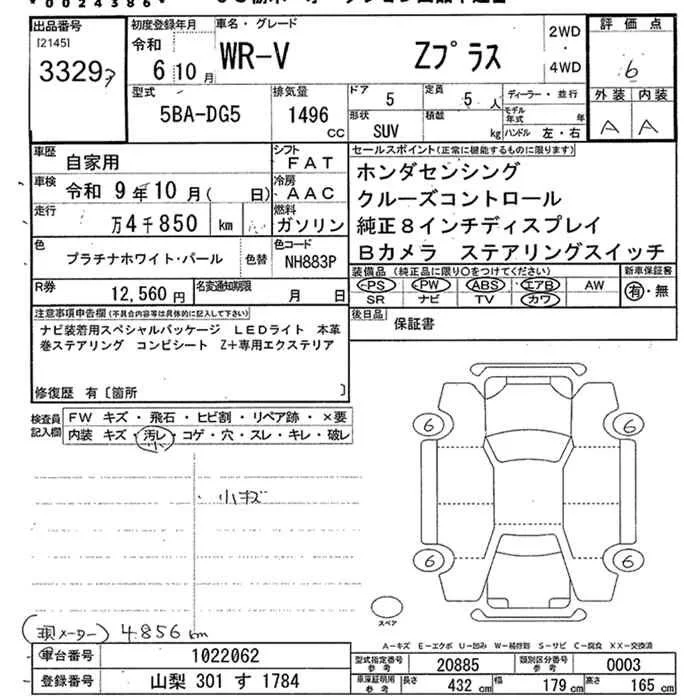 出品番号
[2145]
33297
初度登録年月
令和
6年10月
車名・グレード
WR-V Zプラス
2WD
・
4WD
評価点
6
外装 内装
A A
型式
5BA-DG5
排気量
1496 CC
ドア
5
定員
5人
形状
SUV
積載
kg
ディーラー・並行
モデル年式 年
ハンドル 左・右
車歴 自家用
シフト FAT
車検 令和 9年10月( 日)
冷房 AAC
走行 万4千850 km
燃料 ガソリン
色 プラチナホワイト・パール 色替
色コード NH883P
R券 12,560円
名変通知期限 月 日
セールスポイント(正常に機能するものに限ります)
ホンダセンシング
クルーズコントロール
純正8インチディスプレイ
Bカメラ ステアリングスイッチ
装備品(純正品に限り○をつけてください)
PS PW ABS エアB AW
SR ナビ TV カワ
新車保証書
有・無
後日品 保証書
注意事項申告欄(不具合内容等は具体的に記入して下さい)
ナビ装着用スペシャルパッケージ LEDライト 本革
巻ステアリング コンビシート Z+専用エクステリア
修復歴 有〔箇所 〕
検査員記入欄
FW キズ・飛石・ヒビ割・リペア跡・×要
内装 キズ・汚レ・コゲ・穴・スレ・キレ・破レ
小
小キズ
6 6
6 6
スペア
(現メーター) 4.856km
A-キズ E-エクボ U-凹み W-補修跡 S-サビ C-腐食 XX-交換済
車台番号 1022062
登録番号 山梨 301 す 1784
型式指定番号 参考 20885
類別区分番号 参考 0003
車庫証明用 参考 長さ 432 cm 幅 179 cm 高さ 165 cm